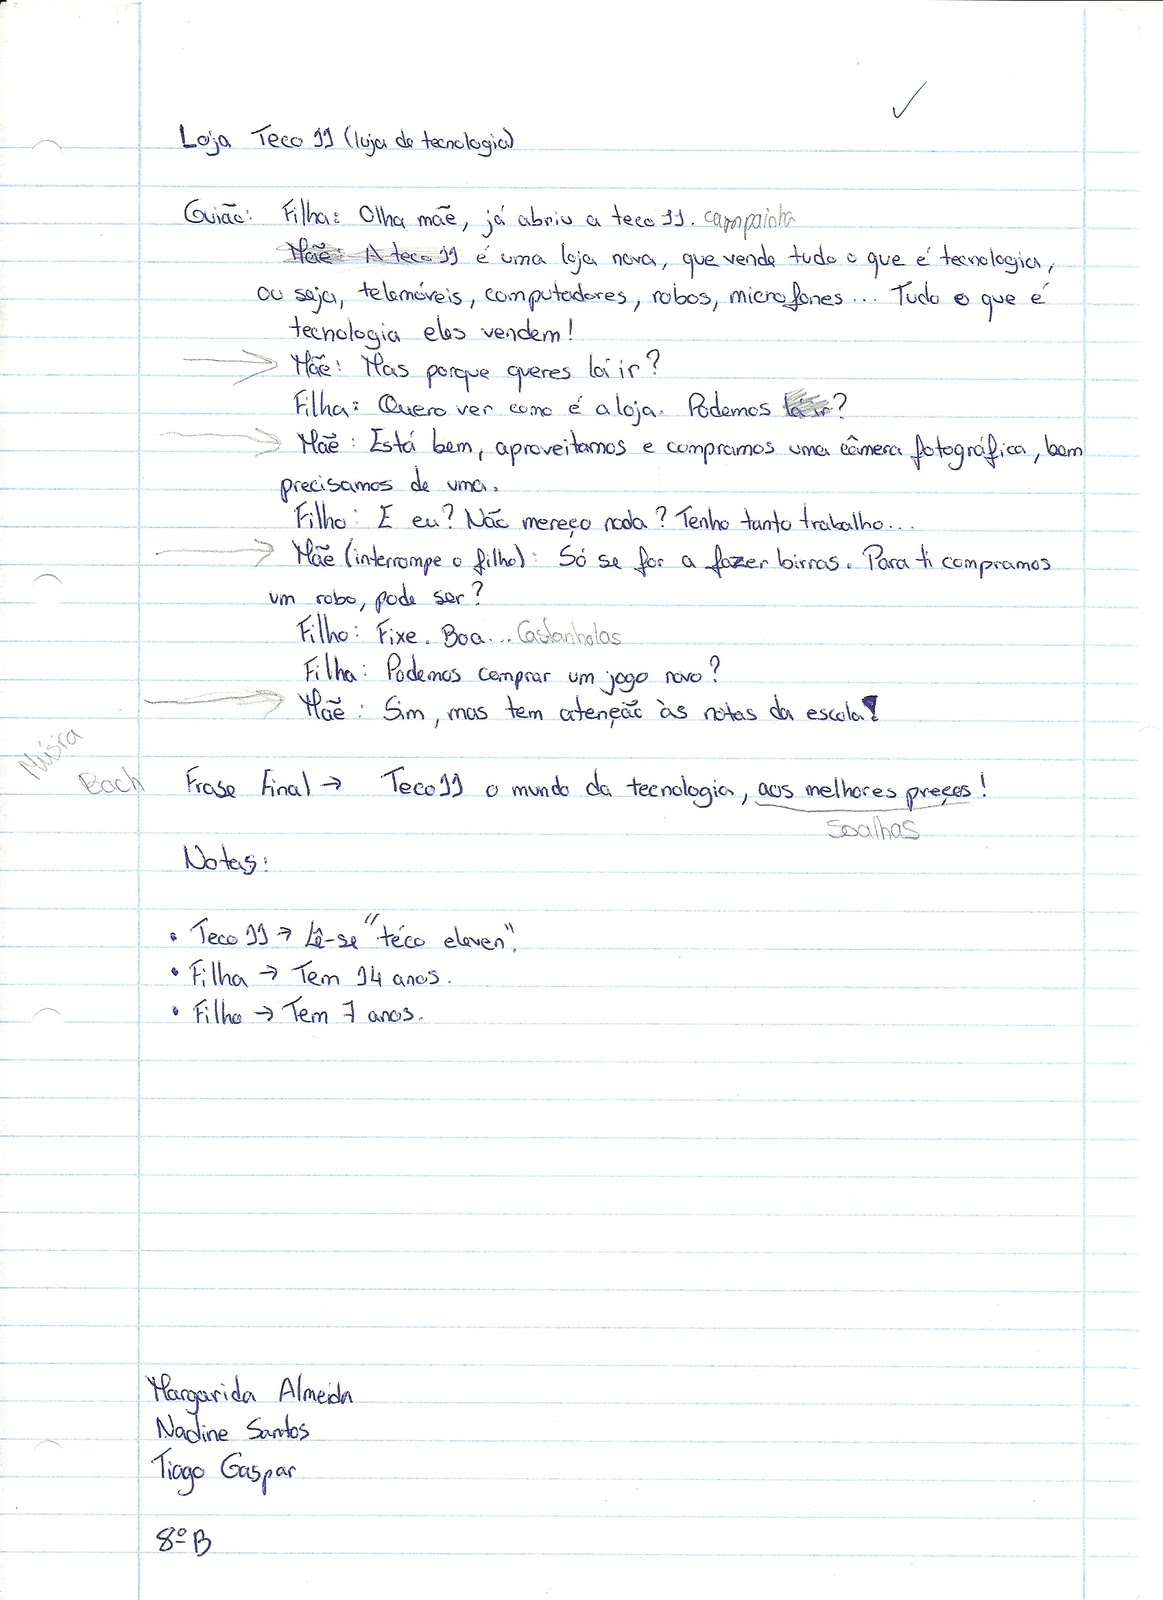 Loja Teco 11 (loja de tecnologia)
Guião: Filha: Olha mãe, já abriu a teco 11. campainha
Mãe: A teco 11 é uma loja nova, que vende tudo o que é tecnologia,
ou seja, telemóveis, computadores, robos, microfones... Tudo o que é
tecnologia eles vendem!
Mãe: Mas porque queres lá ir?
Filha: Quero ver como é a loja. Podemos lá ir?
Mãe: Está bem, aproveitamos e compramos uma câmera fotográfica, bem
precisamos de uma.
Filho: E eu? Não mereço nada? Tenho tanto trabalho...
Mãe (interrompe o filho): Só se for a fazer birras. Para ti compramos
um robo, pode ser?
Filho: Fixe. Boa... Castanholas
Filha: Podemos comprar um jogo novo?
Mãe: Sim, mas tem atenção às notas da escola!
Música
Bach
Frase Final → Teco 11 o mundo da tecnologia, aos melhores preços!
Soalhas
Notas:
• Teco 11 → Lê-se "téco eleven".
• Filha → Tem 14 anos.
• Filho → Tem 7 anos.
Margarida Almeida
Nadine Santos
Tiago Gaspar
8ºB